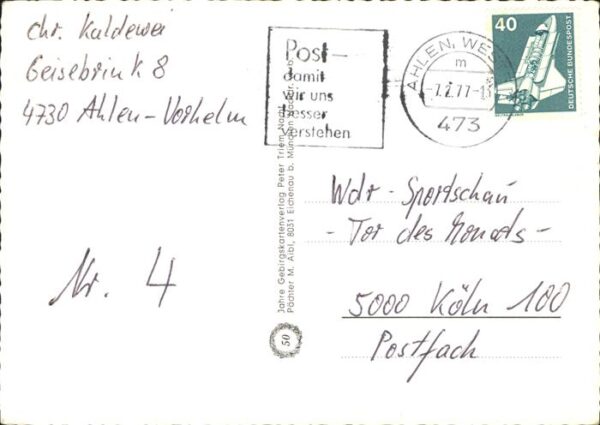 chr. Kaldewei
Geisebrink 8
4730 Ahlen-Vorhelm
Nr. 4
Post-
damit
wir uns
besser
verstehen
AHLEN, WE
m
-7.2.77-13
473
40
DEUTSCHE BUNDESPOST
50
Jahre Gebirgskartenverlag Peter Triem
Pächter M. Aibl, 8031 Eichenau b. München
Wdr - Sportschau
- Tor des Monats -
5000 Köln 100
Postfach